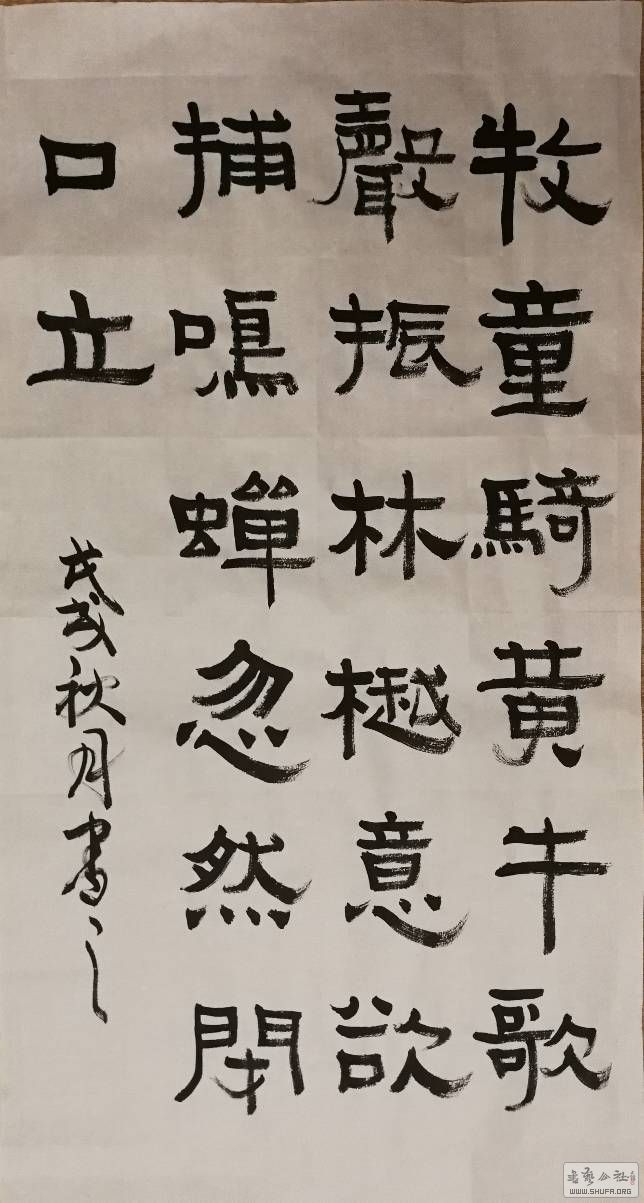 牧童騎黃牛歌
聲振林樾意欲
捕鳴蟬忽然閉
口立
戊戌秋月書之
WWW.SHUFA.ORG